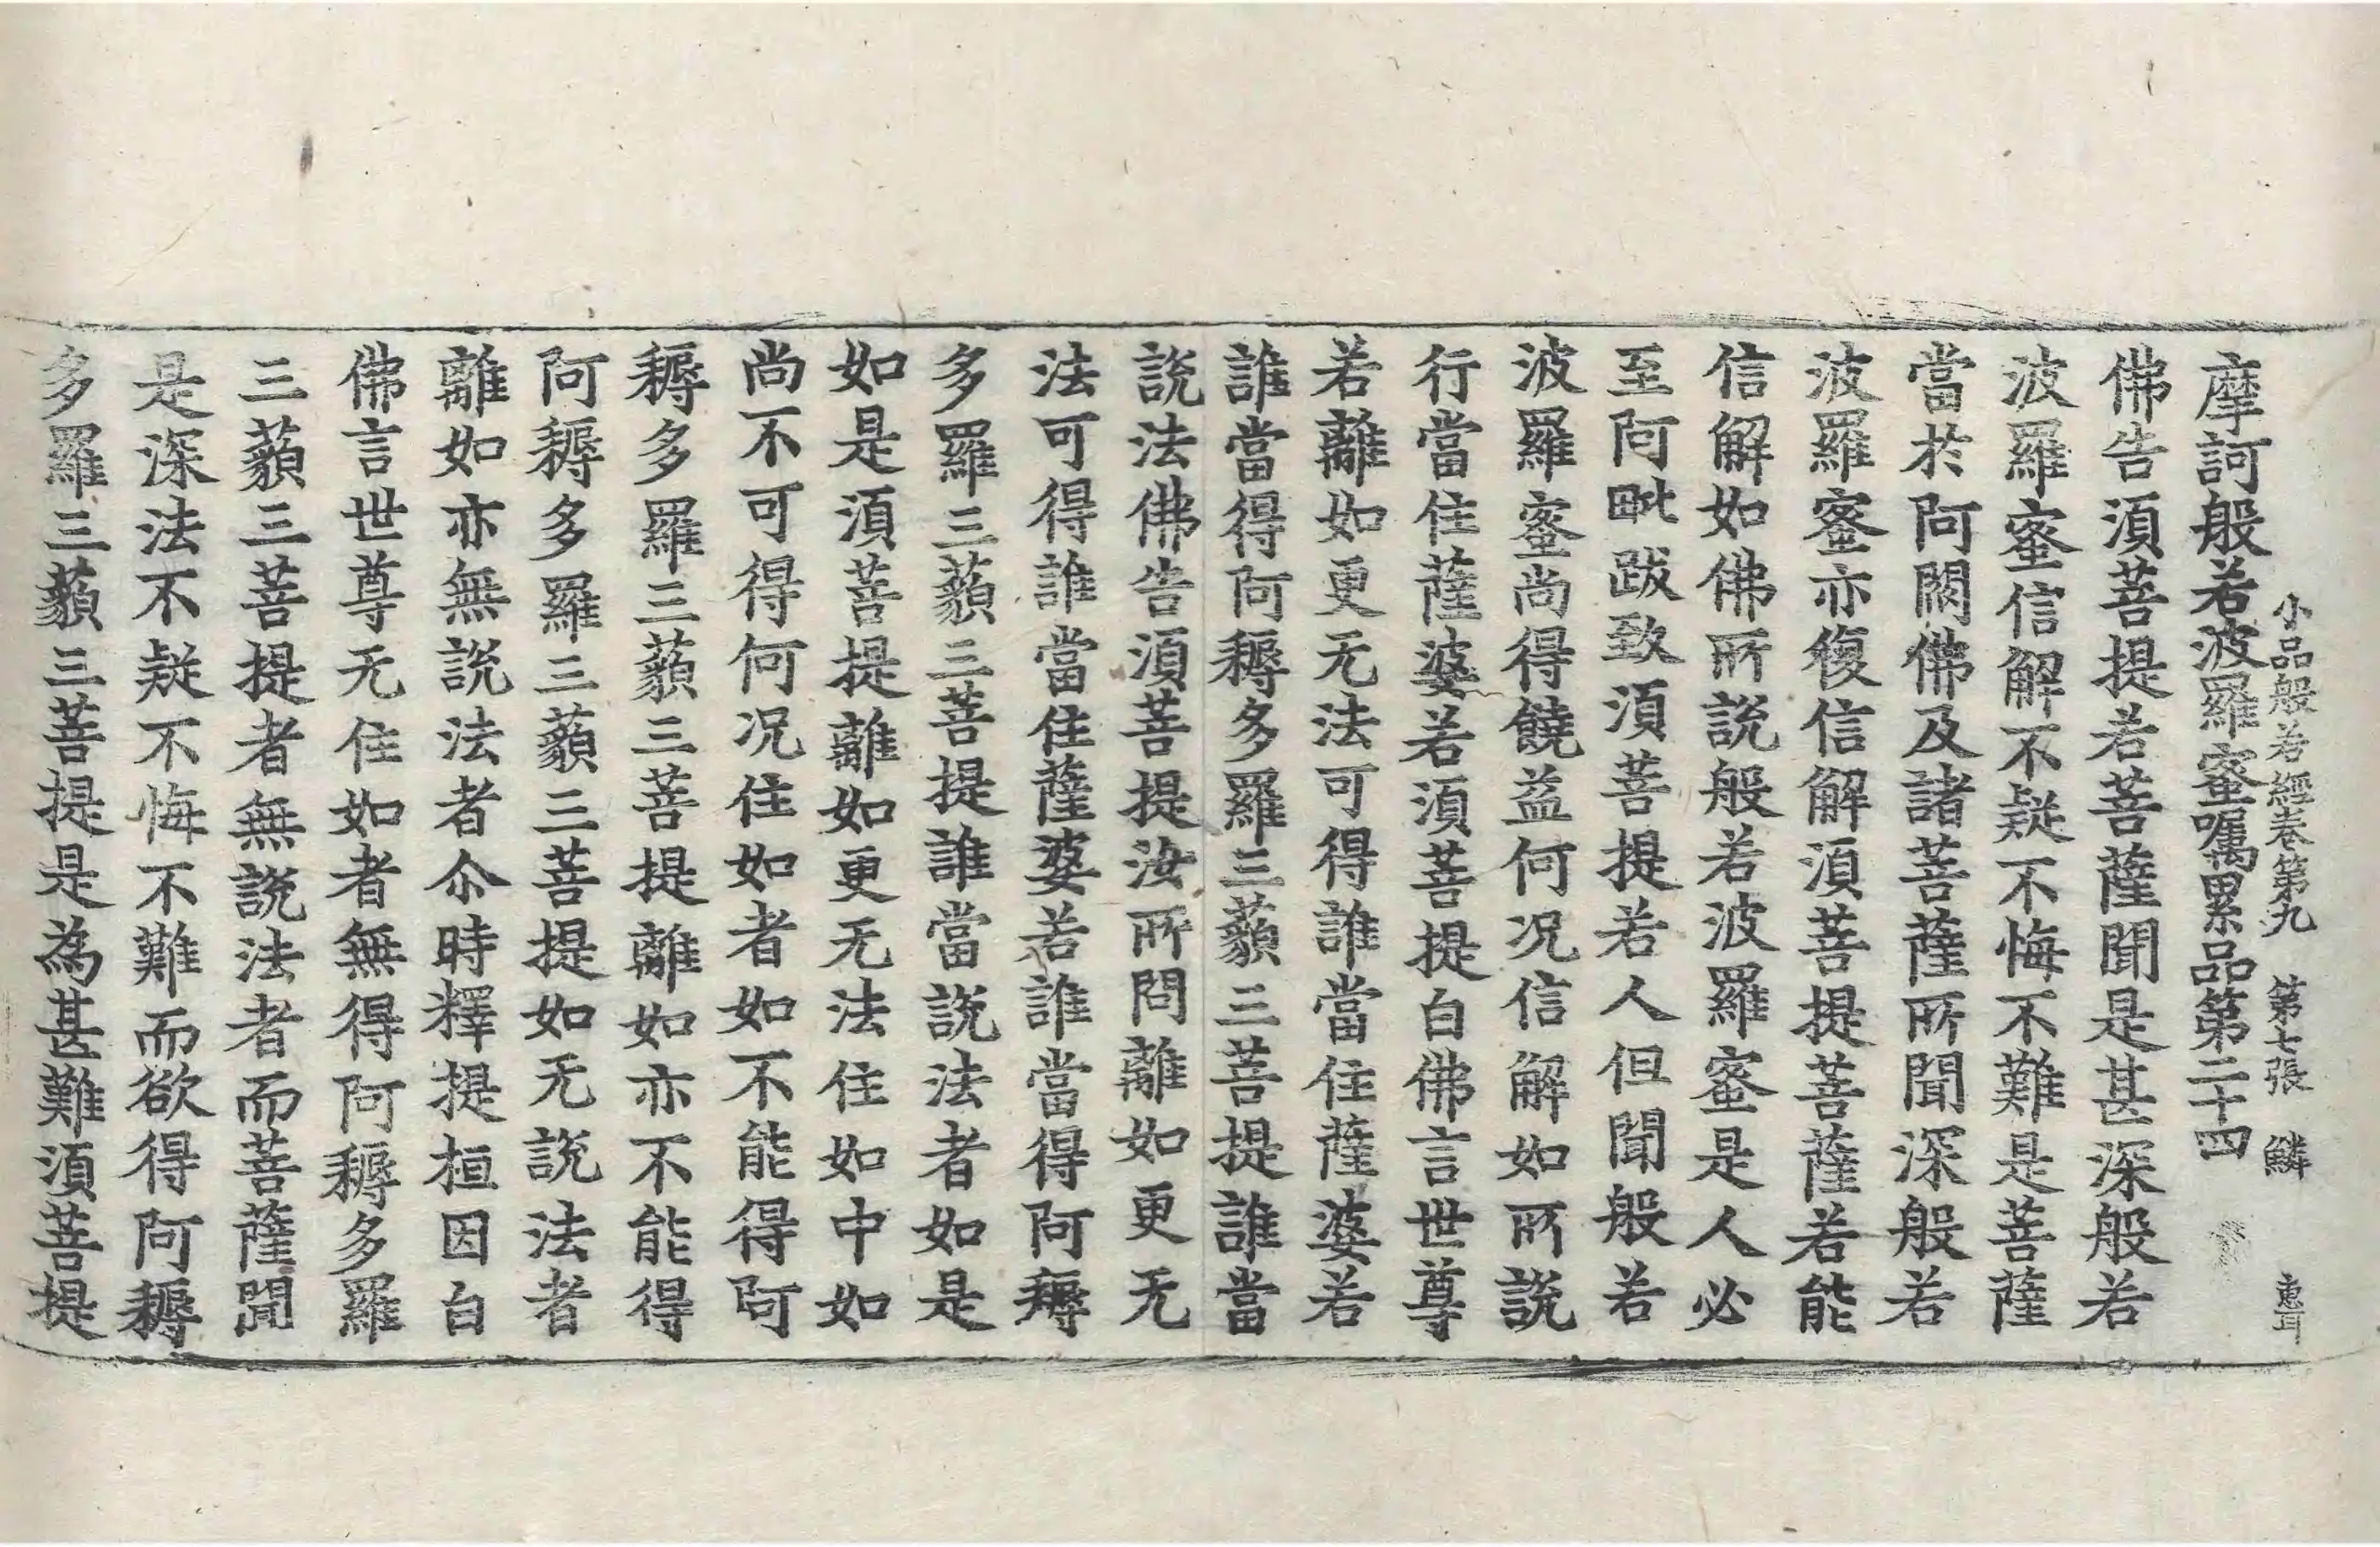 小品般若經卷第九　第七張　鱗　惠耳
摩訶般若波羅蜜囑累品第二十四
佛告湏菩提若菩薩聞是甚深般若
波羅蜜信解不疑不悔不難是菩薩
當於阿閦佛及諸菩薩所聞深般若
波羅蜜亦復信解湏菩提菩薩若能
信解如佛所說般若波羅蜜是人必
至阿毗跋致湏菩提若人但聞般若
波羅蜜尚得饒益何況信解如所說
行當住薩婆若湏菩提白佛言世尊
若離如更无法可得誰當住薩婆若
誰當得阿耨多羅三藐三菩提誰當
說法佛告湏菩提汝所問離如更无
法可得誰當住薩婆若誰當得阿耨
多羅三藐三菩提誰當說法者如是
如是湏菩提離如更无法住如中如
尚不可得何況住如者如不能得阿
耨多羅三藐三菩提離如亦不能得
阿耨多羅三藐三菩提如无說法者
離如亦無說法者尒時釋提桓因白
佛言世尊无住如者無得阿耨多羅
三藐三菩提者無說法者而菩薩聞
是深法不疑不悔不難而欲得阿耨
多羅三藐三菩提是為甚難湏菩提